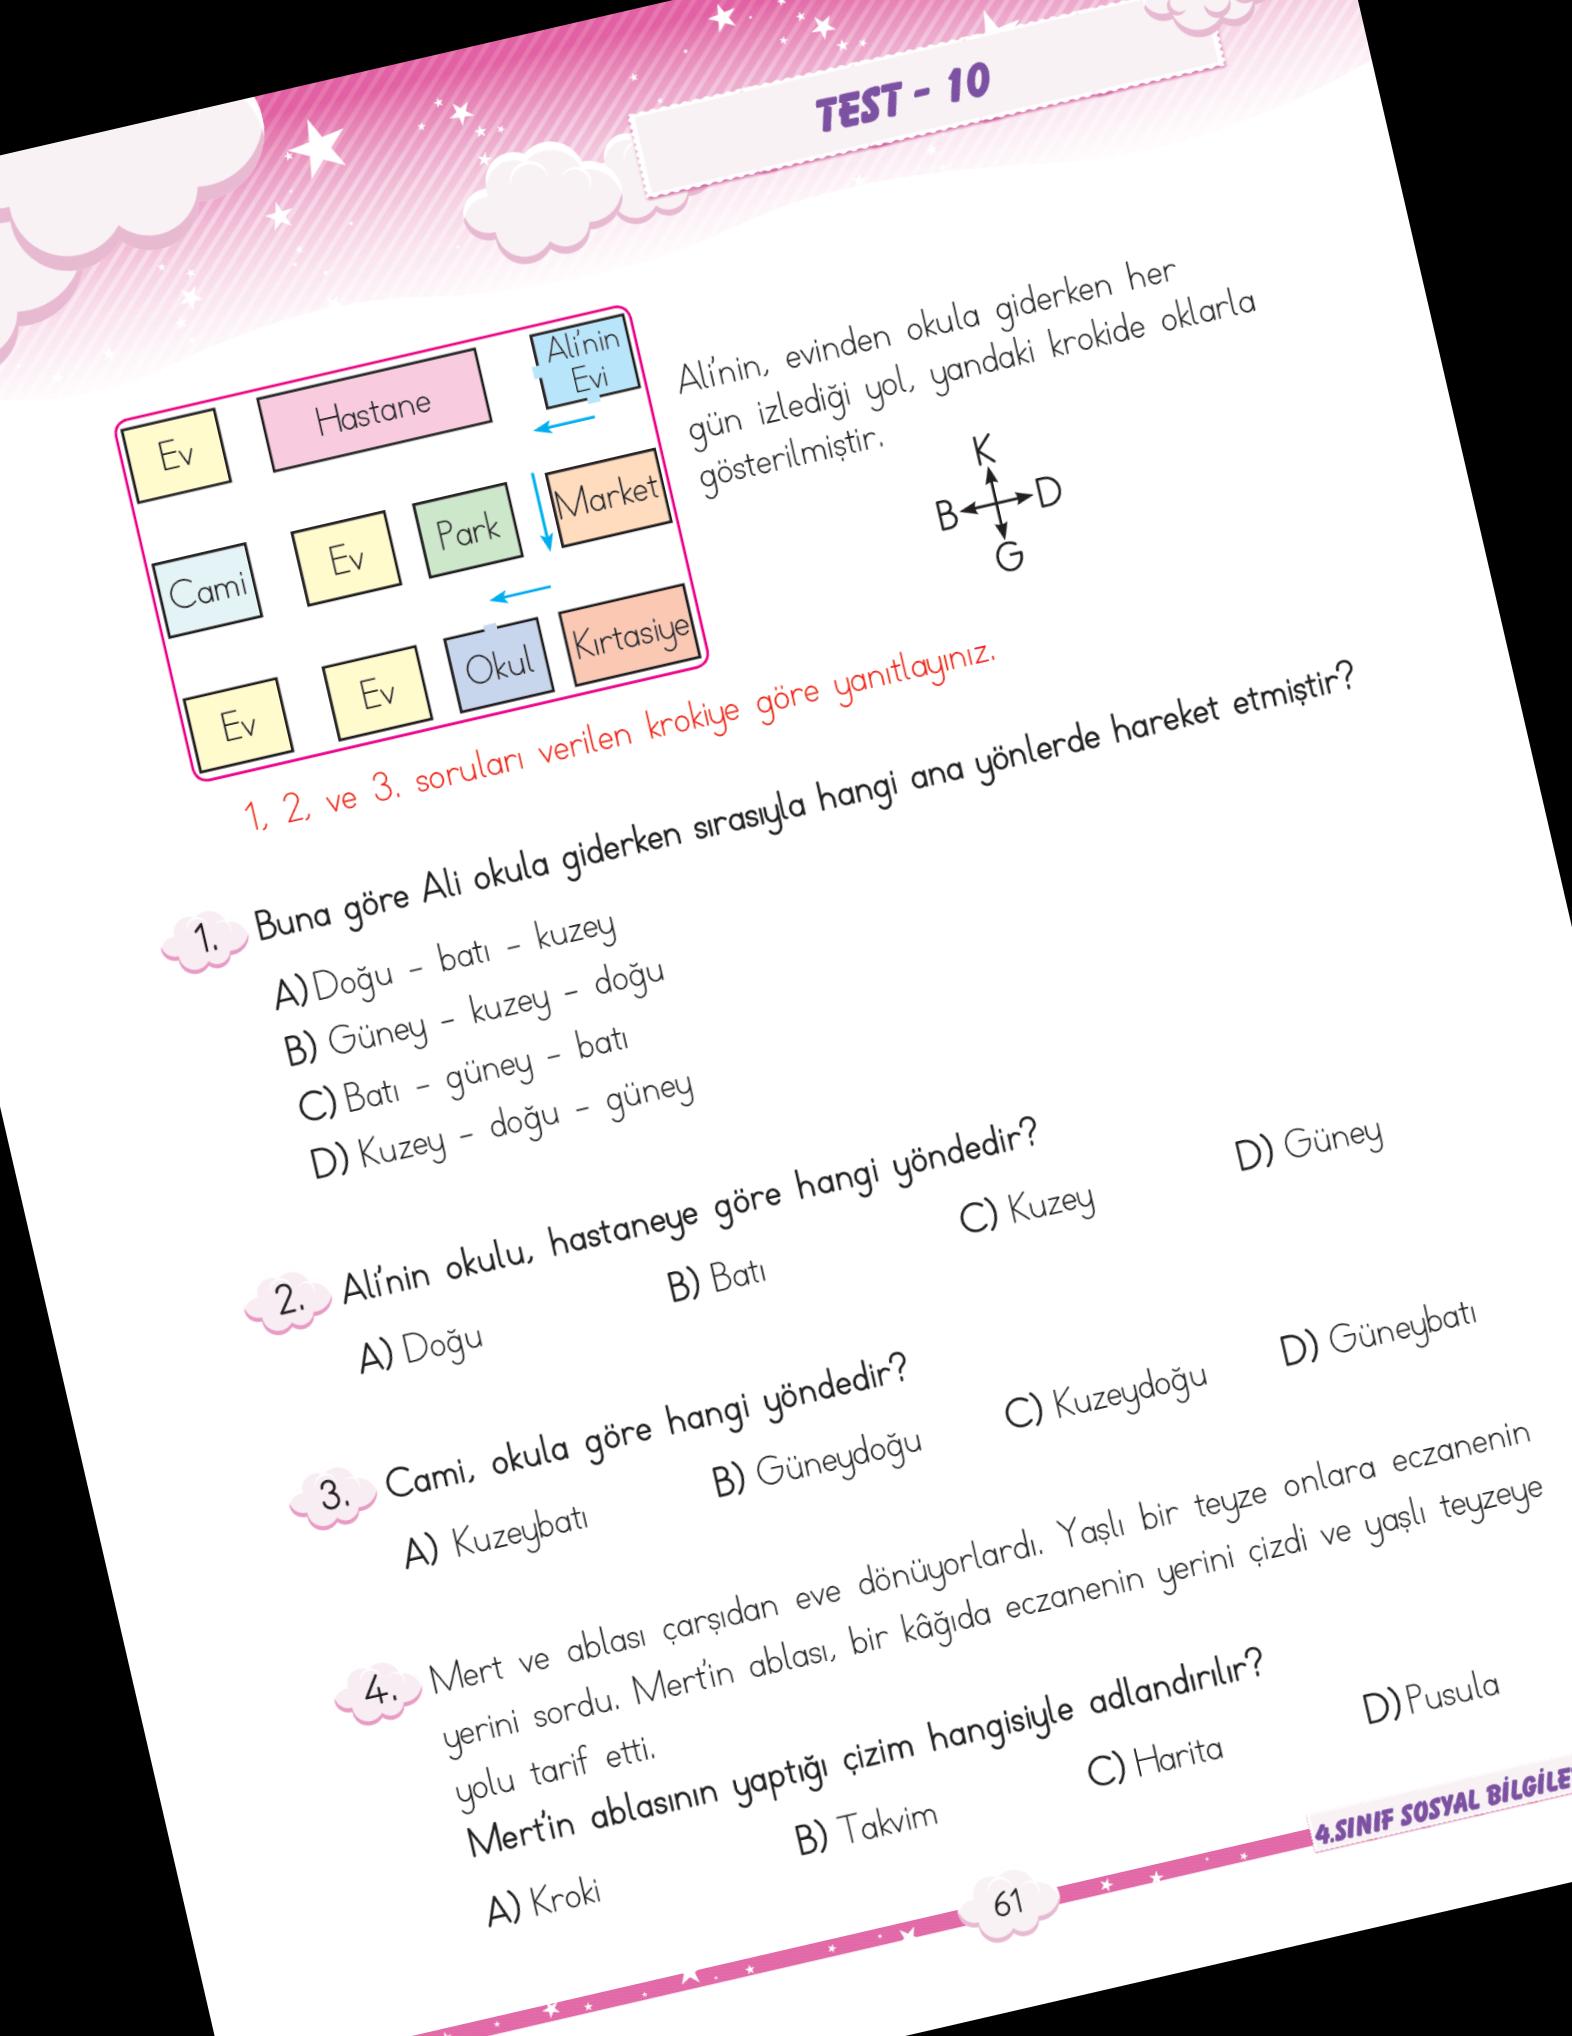 TEST - 10
Ali'nin, evinden okula giderken her
gün izlediği yol, yandaki krokide oklarla
gösterilmiştir.
Ev
Hastane
Ali'nin
Evi
Cami
Ev
Park
Market
Ev
Ev
Okul
Kırtasiye
K
B
D
G
1, 2, ve 3. soruları verilen krokiye göre yanıtlayınız.
1. Buna göre Ali okula giderken sırasıyla hangi ana yönlerde hareket etmiştir?
A) Doğu - batı - kuzey
B) Güney - kuzey - doğu
C) Batı - güney - batı
D) Kuzey - doğu - güney
2. Ali'nin okulu, hastaneye göre hangi yöndedir?
A) Doğu B) Batı C) Kuzey D) Güney
3. Cami, okula göre hangi yöndedir?
A) Kuzeybatı B) Güneydoğu C) Kuzeydoğu D) Güneybatı
4. Mert ve ablası çarşıdan eve dönüyorlardı. Yaşlı bir teyze onlara eczanenin
yerini sordu. Mert'in ablası, bir kâğıda eczanenin yerini çizdi ve yaşlı teyzeye
yolu tarif etti.
Mert'in ablasının yaptığı çizim hangisiyle adlandırılır?
A) Kroki B) Takvim C) Harita D) Pusula
61
4.SINIF SOSYAL